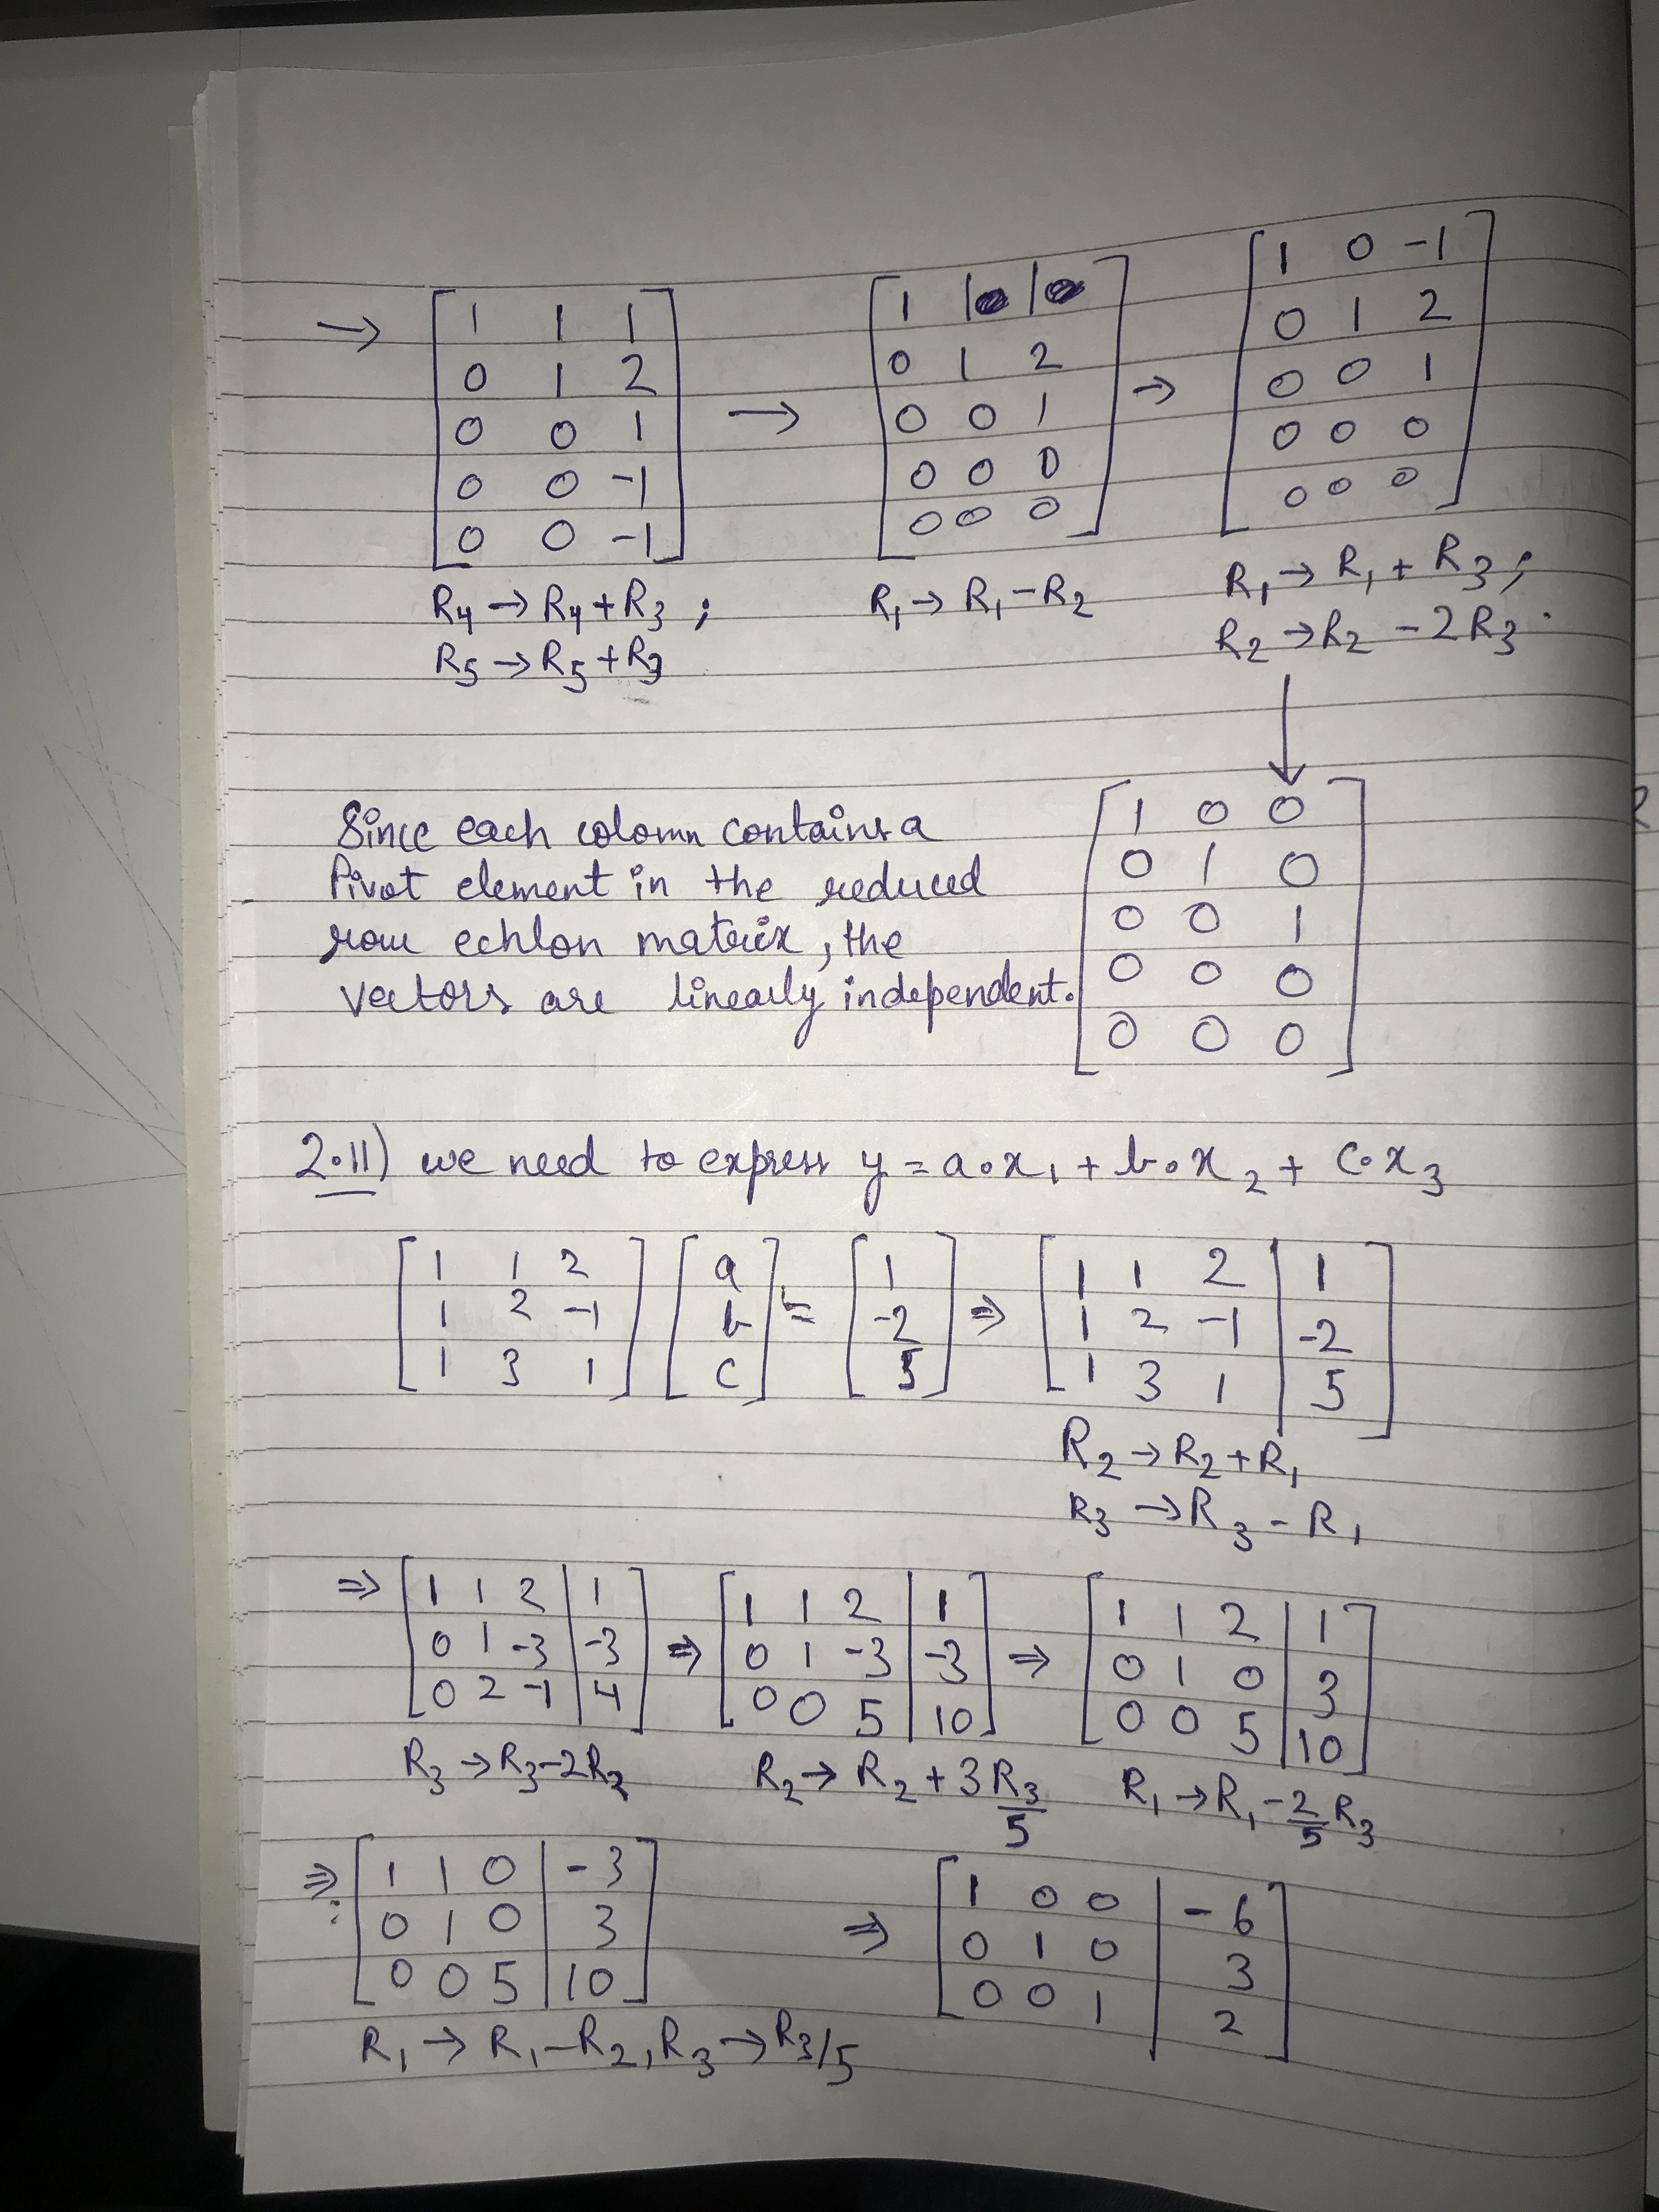 → [1 1 1; 0 1 2; 0 0 1; 0 0 -1; 0 0 -1] → [1 1 1; 0 1 2; 0 0 1; 0 0 0; 0 0 0] → [1 0 -1; 0 1 2; 0 0 1; 0 0 0; 0 0 0]
R₄ → R₄ + R₃ ;
R₅ → R₅ + R₃
R₁ → R₁ - R₂
R₁ → R₁ + R₃ ;
R₂ → R₂ - 2R₃
↓
[1 0 0; 0 1 0; 0 0 1; 0 0 0; 0 0 0]
Since each colomn contains a
Pivot element in the reduced
row echlon matrix, the
vectors are linearly independent.
2.11) we need to express y = a.x₁ + b.x₂ + c.x₃
[1 1 2; 1 2 -1; 1 3 1] [a; b; c] = [1; -2; 5] ⇒ [1 1 2 | 1; 1 2 -1 | -2; 1 3 1 | 5]
R₂ → R₂ + R₁
R₃ → R₃ - R₁
⇒ [1 1 2 | 1; 0 1 -3 | -3; 0 2 -1 | 4] ⇒ [1 1 2 | 1; 0 1 -3 | -3; 0 0 5 | 10] ⇒ [1 1 2 | 1; 0 1 0 | 3; 0 0 5 | 10]
R₃ → R₃ - 2R₂
R₂ → R₂ + 3R₃/5
R₁ → R₁ - 2/5 R₃
⇒ [1 1 0 | -3; 0 1 0 | 3; 0 0 5 | 10] ⇒ [1 0 0 | -6; 0 1 0 | 3; 0 0 1 | 2]
R₁ → R₁ - R₂, R₃ → R₃/5